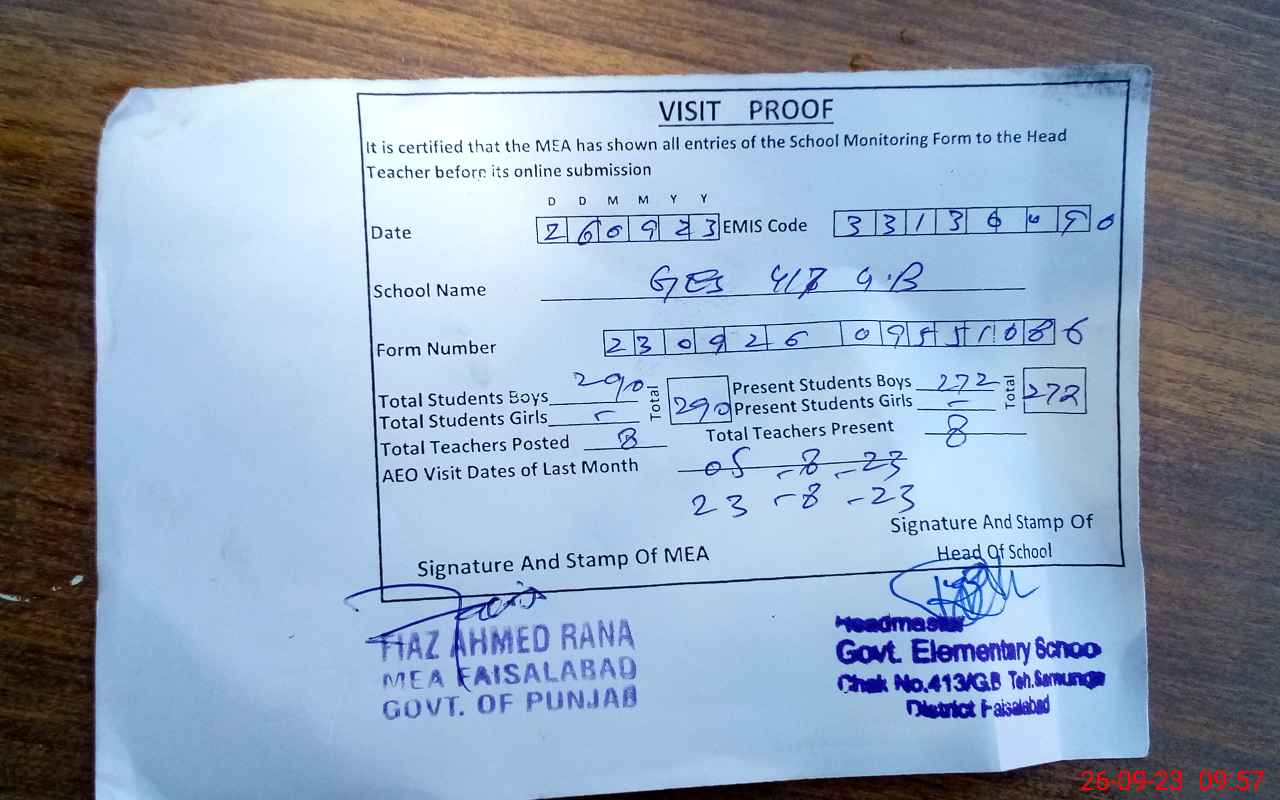 VISIT PROOF
It is certified that the MEA has shown all entries of the School Monitoring Form to the Head
Teacher before its online submission
D D M M Y Y
Date 2 6 0 9 2 3 EMIS Code 3 3 1 3 0 0 9 0
School Name GES 413 G.B
Form Number 2 3 0 9 2 6 0 9 5 5 1 0 8 6
Total Students Boys 290 Total 290 Present Students Boys 272 Total 272
Total Students Girls - Present Students Girls -
Total Teachers Posted 8 Total Teachers Present 8
AEO Visit Dates of Last Month 05-8-23
23-8-23
Signature And Stamp Of MEA
Signature And Stamp Of
Head Of School
FIAZ AHMED RANA
MEA FAISALABAD
GOVT. OF PUNJAB
Headmaster
Govt. Elementary Schoo
Chak No.413/G.B Teh.
District Faisalabad
26-09-23 09:57